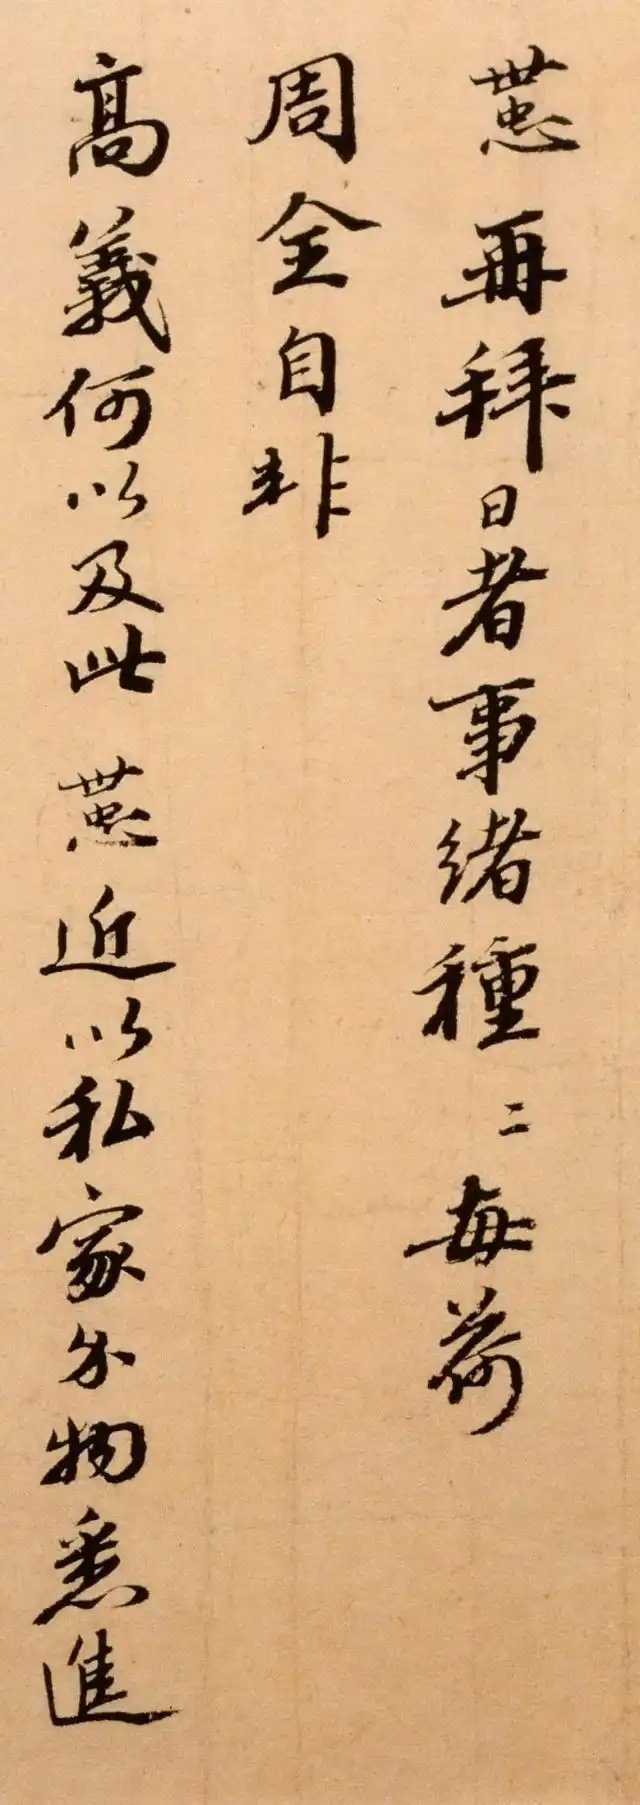 世忠再拜日者事緒種二每荷
周全自非
高義何以及此世忠近以私家分物悉進